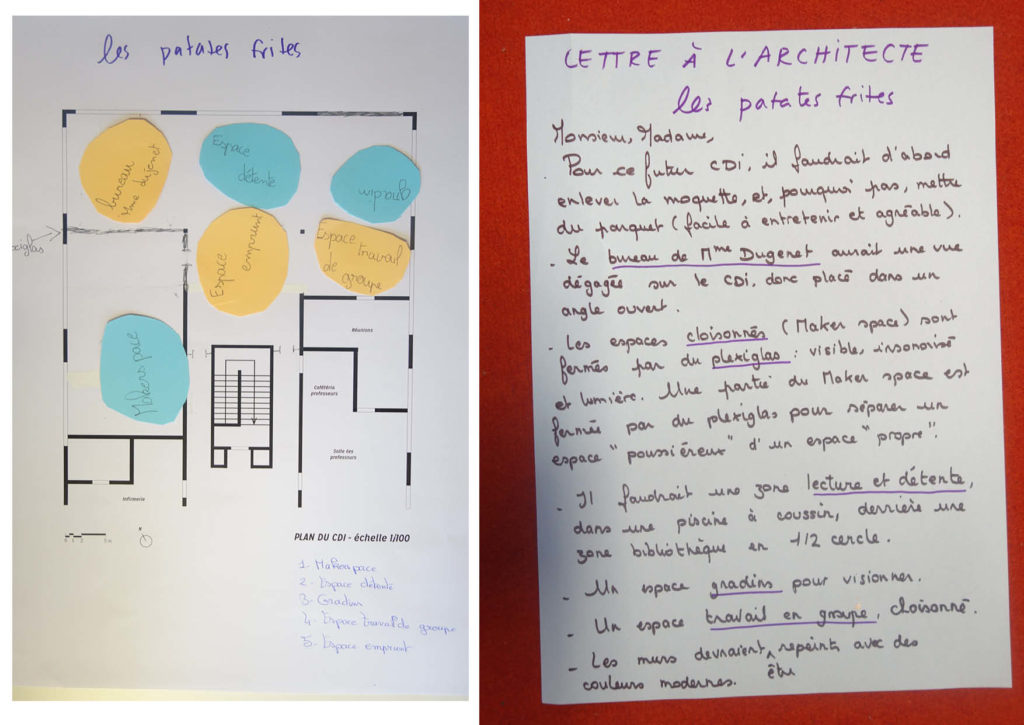 les patates frites
bureau
Mme dujenet
Espace
détente
gradin
Espace
emprunt
Espace travail
de
groupe
xiglas
Makerspace
Réunions
Cafétéria
professeurs
Salle des
professeurs
Infirmerie
N
PLAN DU CDI - échelle 1/100
1- Makerspace
2- Espace détente
3- Gradin
4- Espace travail de groupe
5- Espace emprunt
LETTRE À L'ARCHITECTE
les patates frites
Monsieur, Madame,
Pour ce futur CDI, il faudrait d'abord
enlever la moquette, et, pourquoi pas, mettre
du parquet (facile à entretenir et agréable).
- Le bureau de Mme Dugenet aurait une vue
dégagée sur le CDI, donc placé dans un
angle ouvert.
- Les espaces cloisonnés (Maker space) sont
fermés par du plexiglas : visible, insonorisé
et lumière. Une partie du Maker space est
fermée par du plexiglas pour séparer un
espace "poussiéreux" d'un espace "propre".
- Il faudrait une zone lecture et détente,
dans une piscine à coussin, derrière une
zone bibliothèque en 1/2 cercle.
- Un espace gradins pour visionner.
- Un espace travail en groupe, cloisonné.
- Les murs devraient être repeints avec des
couleurs modernes.